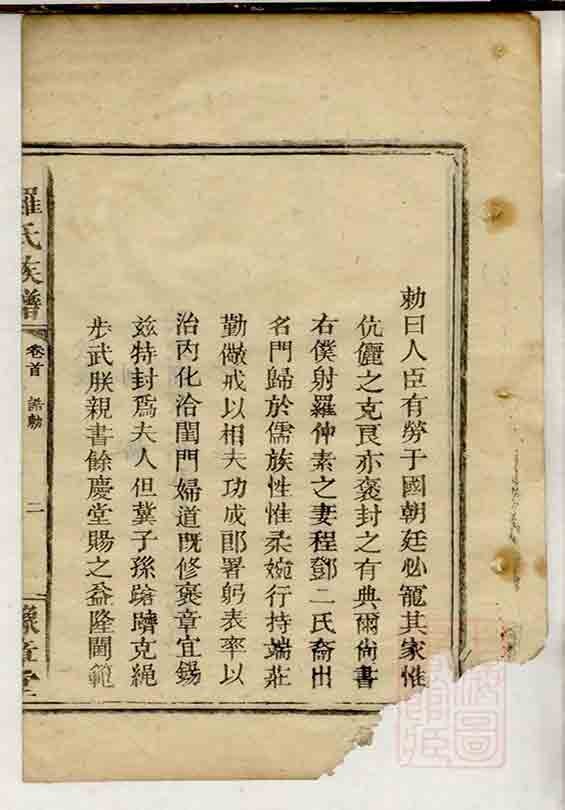 勅曰人臣有勞于國朝廷必寵其家惟
伉儷之克良亦褒封之有典爾尚書
右僕射羅仲素之妻程鄧二氏裔出
名門歸於儒族性惟柔婉行持端莊
勤儆戒以相夫功成郎署躬表率以
治内化洽閨門婦道既修褒章宜錫
兹特封爲夫人但冀子孫蹌躋克繩
步武朕親書餘慶堂賜之益隆閫範
羅氏族譜
卷首
誥勅
二
豫章堂